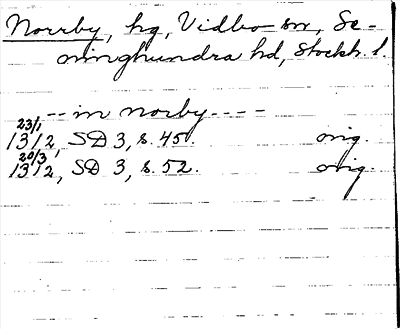 Norrby, hg, Vidbo sn, Se-
minghundra hd, Stockh. l.
-- in norby ----
23/1
1312, SD 3, s. 45. orig.
20/3
1312, SD 3, s. 52. orig.